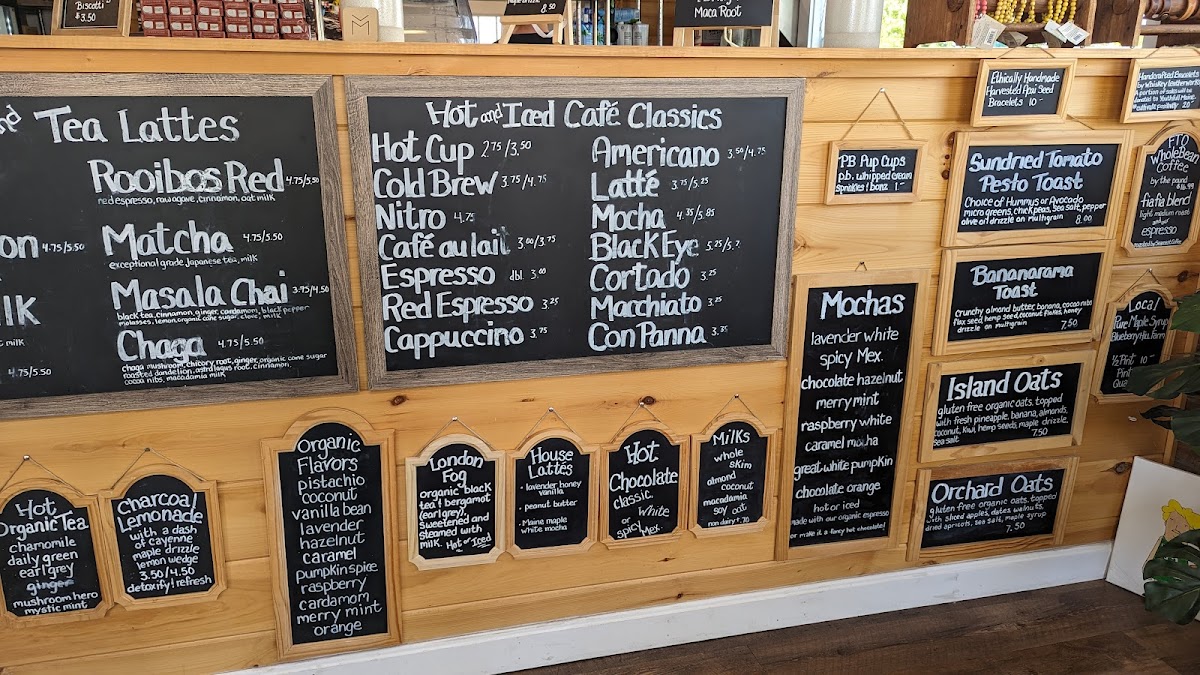 Biscotti
$3.50
8.50
Maca Root
M
Tea Lattes
Rooibos Red 4.75/5.50
red espresso, raw agave, cinnamon, oat milk
4.75/5.50
Matcha 4.75/5.50
exceptional grade, Japanese tea, milk
Masala Chai 3.75/4.50
black tea, cinnamon, ginger, cardamom, black pepper
molasses, lemon, organic cane sugar, clove, milk
Chaga 4.75/5.50
chaga mushroom, chicory root, ginger, organic cane sugar
roasted dandelion, astragalus root, cinnamon,
cocoa nibs, macadamia milk
4.75/5.50
Hot and Iced Café Classics
Hot Cup 2.75/3.50
Cold Brew 3.75/4.75
Nitro 4.75
Café au lait 3.00/3.75
Espresso dbl. 3.00
Red Espresso 3.25
Cappuccino 3.75
Americano 3.50/4.75
Latté 3.75/5.25
Mocha 4.35/5.85
Black Eye
Cortado 3.25
Macchiato 3.25
Con Panna 3.35
PB Pup Cups
p.b. whipped cream
sprinkles! bonz 1-
Ethically Handmade
Harvested Acai Seed
Bracelets 10-
Handcrafted Bracelets
Sundried Tomato
Pesto Toast
Choice of Hummys or Avocado
micro greens, chick peas, sea salt, pepper
olive oil drizzle on multigrain 8.00
FTO
Whole Bean
Coffee
by the pound
$16.99
fiafia blend
light medium roast
espresso
Bananarama
Toast
Crunchy almond butter, banana, cocoa nibs
flax seed, hemp seed, coconut flakes, honey
drizzle on multigrain 7.50
Local
Pure Maple Syrup
½ Pint
Pint
Island Oats
gluten free organic oats, topped
with fresh pineapple, banana, almonds,
coconut, kiwi, hemp seeds, maple drizzle,
sea salt 7.50
Orchard Oats
gluten free organic oats, topped
with sliced apples, dates, walnuts,
dried apricots, sea salt, maple syrup
7.50
Mochas
lavender white
spicy Mex.
chocolate hazelnut
merry mint
raspberry white
caramel mocha
great white pumpkin
chocolate orange
hot or iced
made with our organic espresso
or make it a fancy hot chocolate!
Hot
Organic Tea
chamomile
daily green
earl grey
ginger
mushroom hero
mystic mint
Charcoal
Lemonade
with a dash
of cayenne
maple drizzle
lemon wedge
3.50/4.50
detoxify! refresh
Organic
Flavors
pistachio
coconut
vanilla bean
lavender
hazelnut
caramel
pumpkin spice
raspberry
cardamom
merry mint
orange
London
Fog
organic black
tea! bergamot
(earl grey),
sweetened and
steamed with
milk. Hot or Iced
House
Lattés
· lavender honey
vanilla
· peanut butter
· Maine maple
white mocha
Hot
Chocolate
classic
or white
or
spicy Mex
Milks
whole
skim
almond
coconut
macadamia
soy oat
non dairy + .70